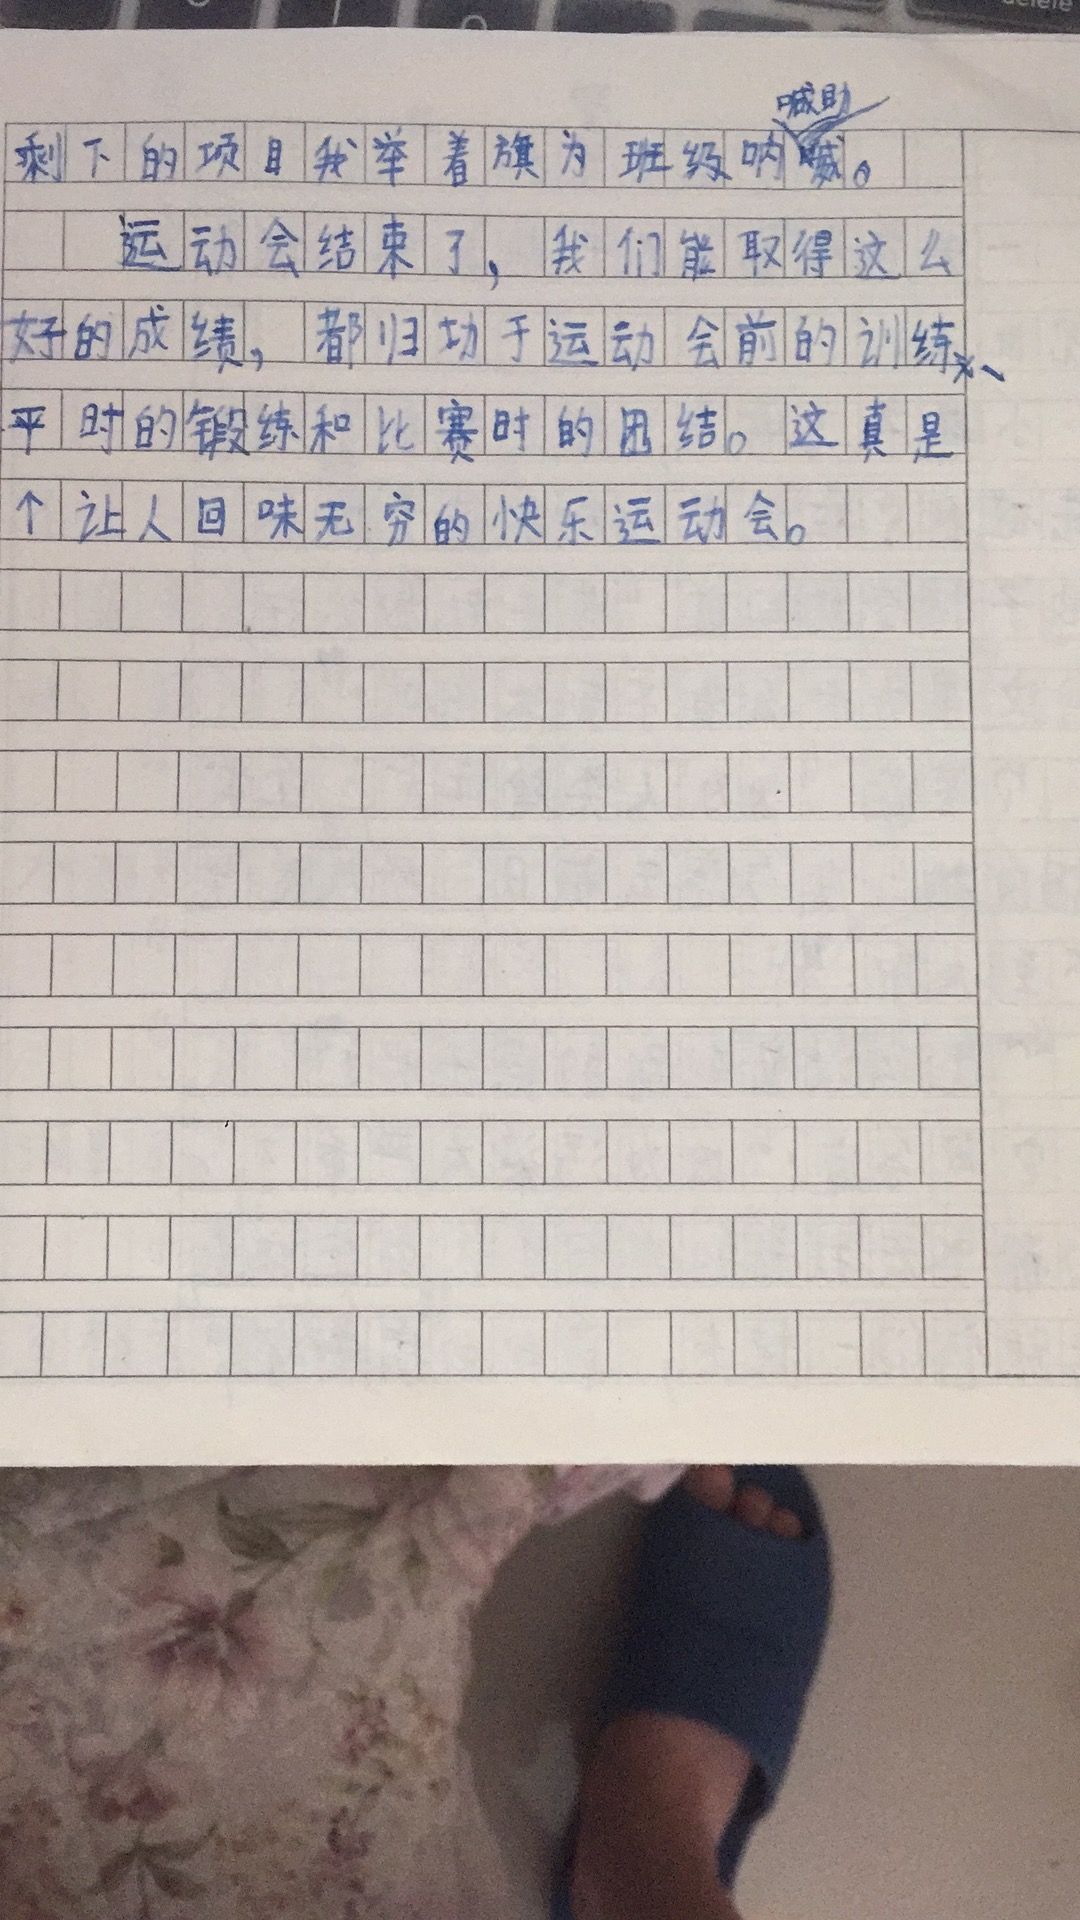 delete
喊助
剩下的项目我举着旗为班级呐喊。
运动会结束了，我们能取得这么
好的成绩，都归功于运动会前的训练、
平时的锻练和比赛时的团结。这真是
个让人回味无穷的快乐运动会。